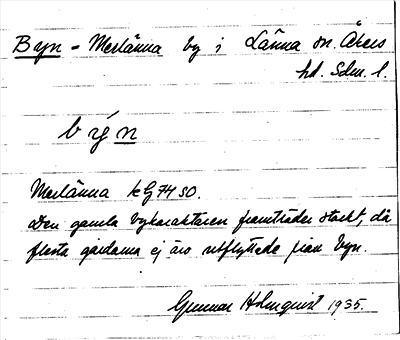 Byn - Merlänna by i Länna sn. Åkers
hd. Södm. l.
bý n
Merlänna kG 74 SO.
Den gamla bykaraktären framträder starkt, då
flesta gårdarna ej äro utflyttade från byn.
Gunnar Holmquist 1935.